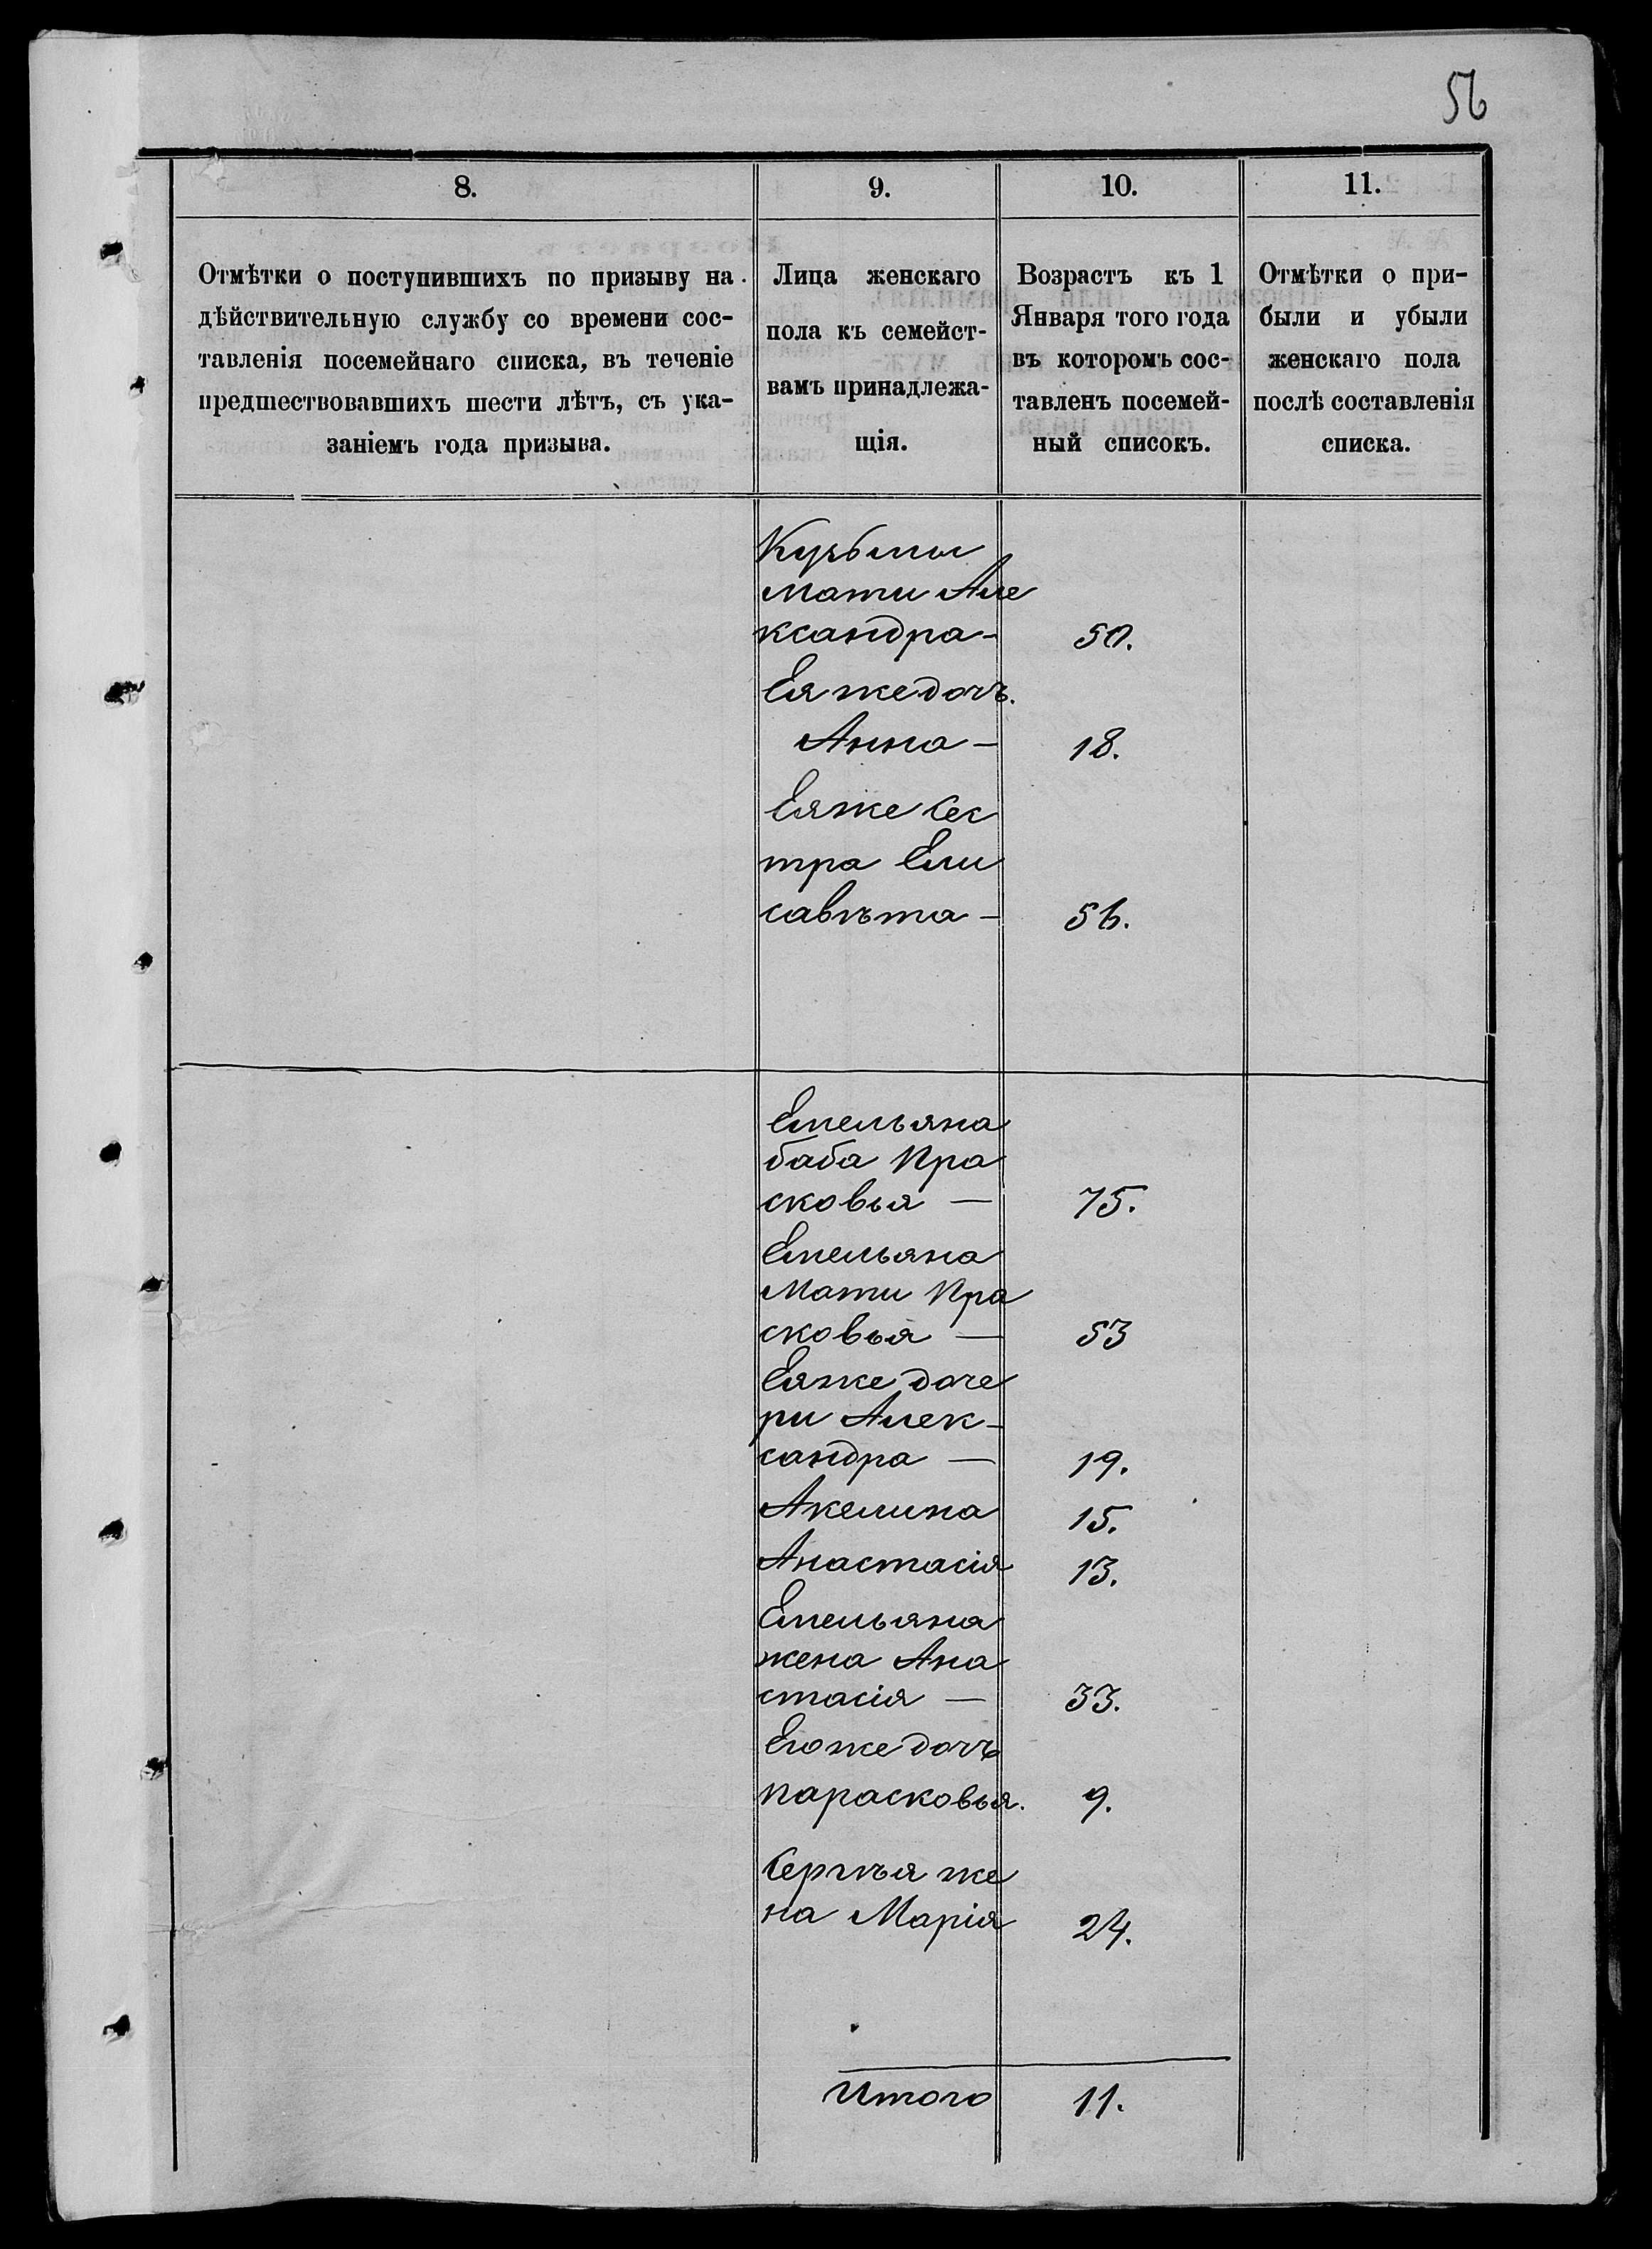 56
8.
9.
10.
11.
Отмѣтки о поступившихъ по призыву на
дѣйствительную службу со времени сос-
тавленія посемейнаго списка, въ теченіе
предшествовавшихъ шести лѣтъ, съ ука-
заніемъ года призыва.
Лица женскаго
пола къ семейст-
вамъ принадлежа-
щія.
Возрастъ къ 1
Января того года
въ которомъ сос-
тавленъ посемей-
ный списокъ.
Отмѣтки о при-
были и убыли
женскаго пола
послѣ составленія
списка.
Кузьмы
мати Але
ксандра- 50.
Ея же дочъ.
Анна - 18.
Ея же Сес
тра Ели
савѣта - 56.
Емельяна
баба Пра
сковья — 75.
Емельяна
мати Пра
сковья — 53
Ея же доче
ри Алек-
сандра — 19.
Акелина 15.
Анастасія 13.
Емельяна
жена Ана
стасія — 33.
Его же дочъ
Парасковья. 9.
Сергѣя же
на Марія 24.
Итого 11.